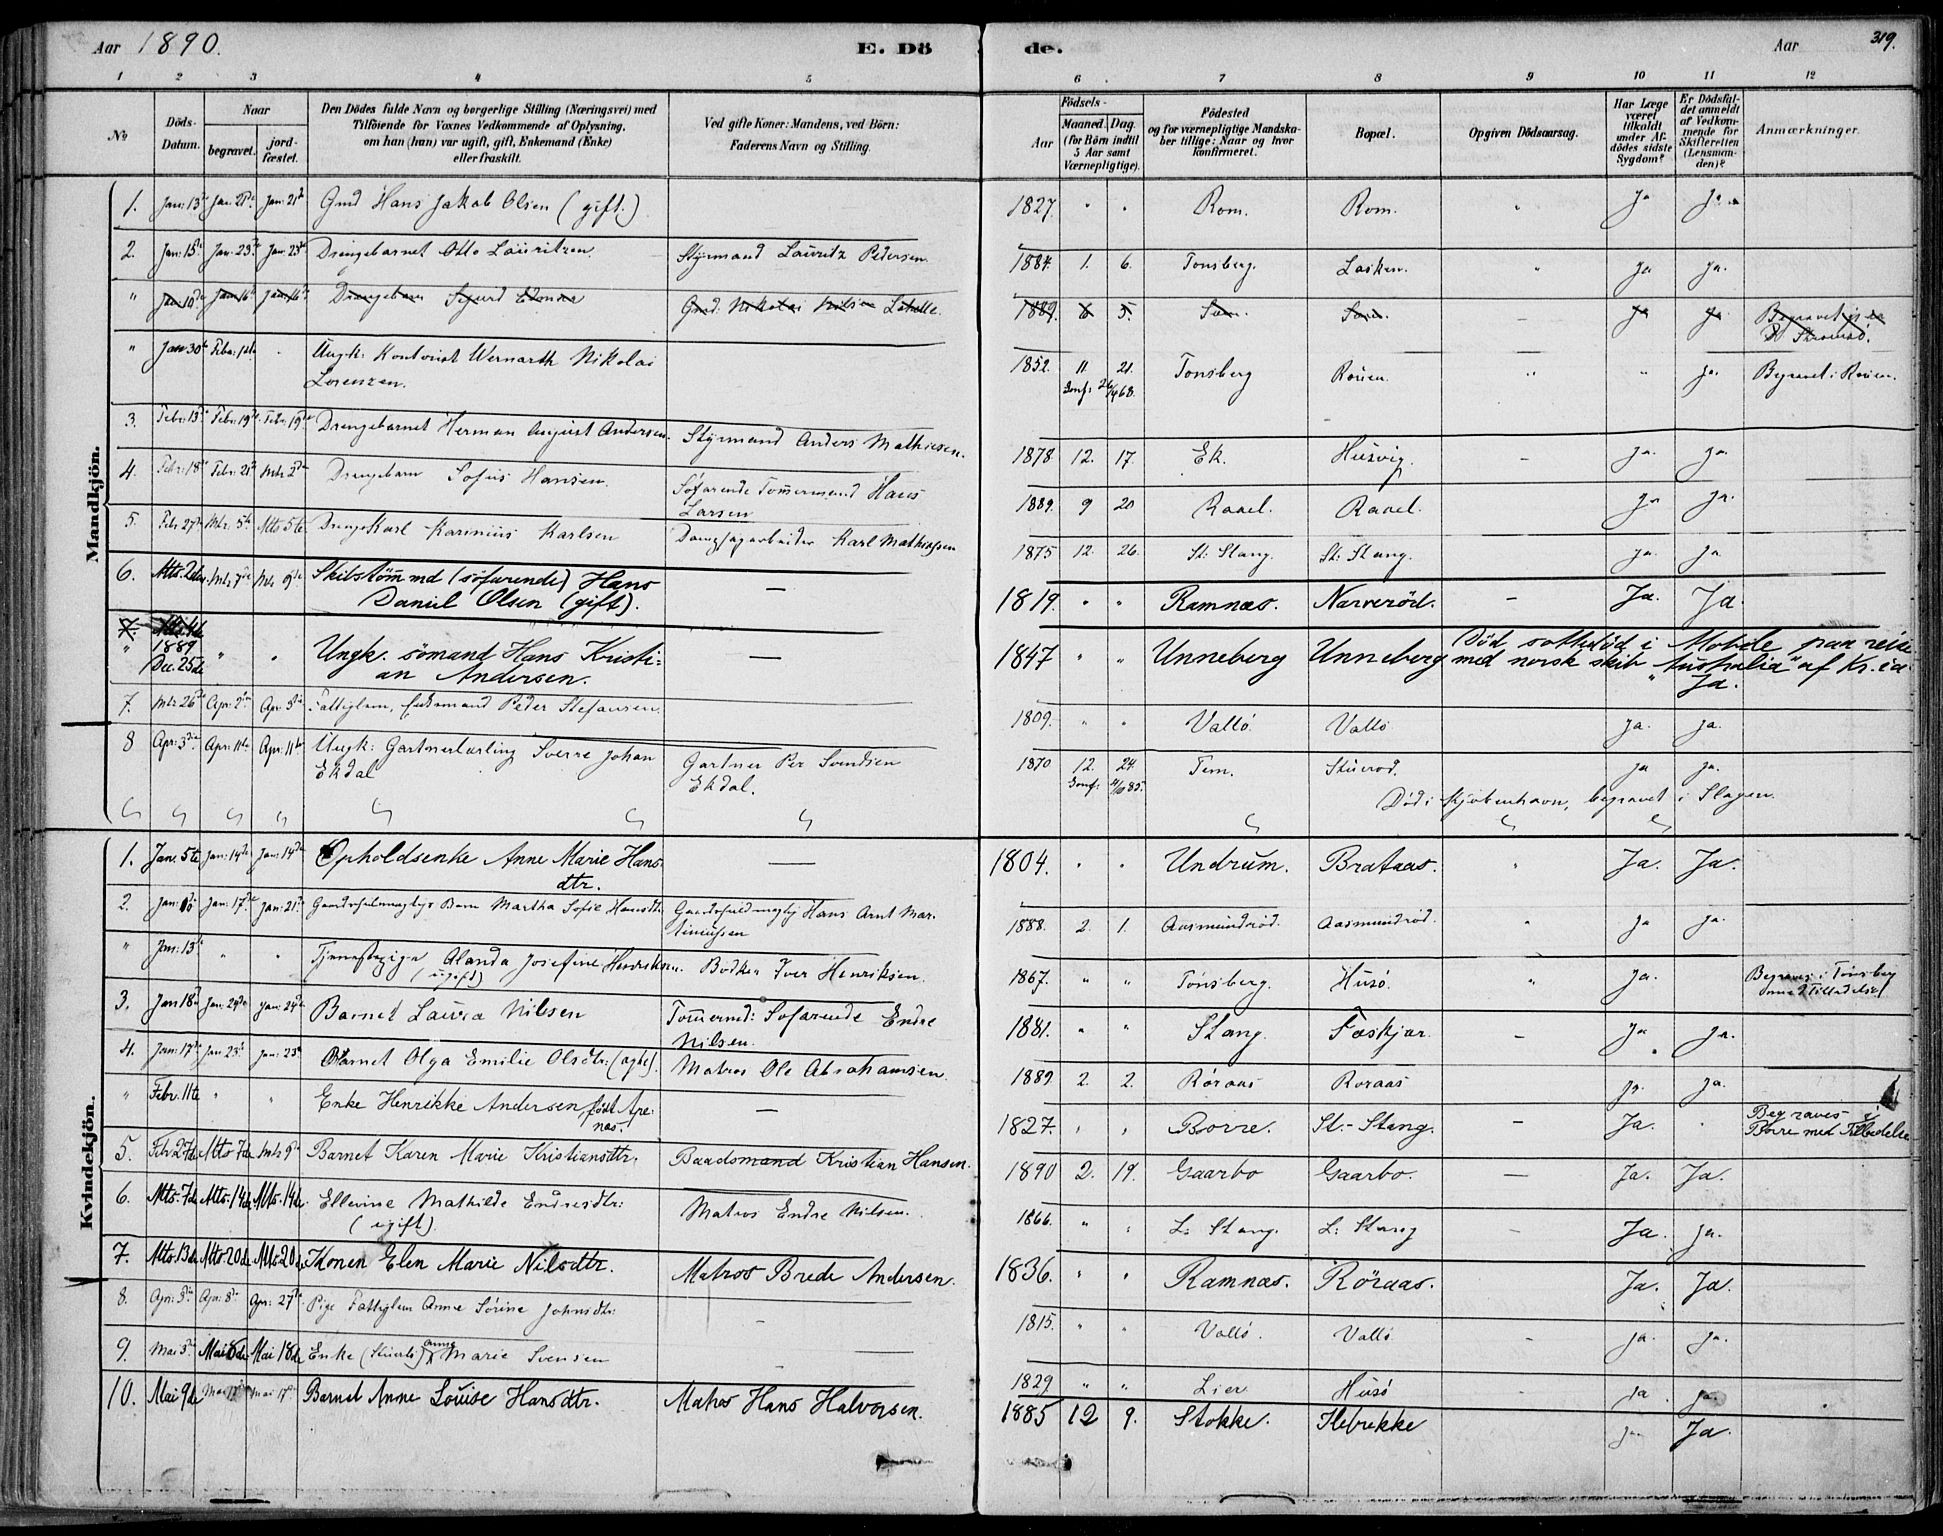 Aar 1890. E. Dö de. Aar 319.
1 2 3 4 5 6 7 8 9 10 11 12
No
Döds-Datum.
Naar
begravet. jord-fæstet.
Den Dödes fulde Navn og borgerlige Stilling (Næringsvei) med
Tilföiende for Voxnes Vedkommende af Oplysning,
om han (hun) var ugift, gift, Enkemand (Enke)
eller fraskilt.
Ved gifte Koner: Mandens, ved Börn:
Faderens Navn og Stilling.
Födsels-
Aar
Maaned. Dag
(for Börn indtil
5 Aar samt
Værnepligtige).
Födested
og for værnepligtige Mandska-
ber tillige: Naar og hvor
konfirmeret.
Bopæl.
Opgiven Dödsaarsag.
Har Læge
været
tilkaldt
under Af-
dödes sidste
Sygdom?
Er Dödsfal-
det anmeldt
af Vedkom-
mende for
Skifteretten
(Lensman-
den)?
Anmærkninger.
Mandkjön.
1. Jan: 13de Jan: 21de Jan: 21de Gmd Hans Jakob Olsen (gift.) 1827. " " Rom. Rom. " Ja Ja
2. Jan: 15de Jan: 23de Jan: 23de Drengebarnet Otto Lauritzen. Styrmand Lauritz Pedersen. 1884. 1. 6. Tonsberg. Lasken. " Ja Ja.
" Jan: 10de Jan: 16de Jan: 16de Drengebarn Sigurd Gmd: Nikolai Nilsen 1889. 6 5. Sem. Sem. - Ja Ja. Begravet
" Jan: 30te Febr: 1ste . Ungk: Kontorist Wernarth Nikolai
Lorenzen. 1852. 11 21. Tonsberg Rouen. " " Ja. Begravet i Rouen.
Conf: 26/4 68.
3. Febr: 13de Febr: 19de Febr: 19de Drengebarnet Herman August Andersen. Styrmand Anders Mathiesen. 1878 12. 17. Ek. Husvig. - Ja. Ja.
4. Febr: 18de Febr: 21de Mts 2den Drengebarn Sofus Hansen. Söfarende Tömmermand Hans
Larsen 1889. 9 20 Raael. Raael. Ja Ja.
5. Febr 27de Mts. 5te Mts 5te Dreng Karl Karinius Karlsen Dampsagarbeider Karl Mathiassen 1875 12. 26. St: Stang. St: Stang. - Ja. Ja
6. Mts. 2den Mts. 7de Mts 9de Skibstömmd (söfarende) Hans
Daniel Olsen (gift). — 1819. " " Ramnæs. Narveröd. - Ja. Ja.
7. Mts. 4de
" 1889
Dec. 25de " " Ungk. sömand Hans Kristi=
an Andersen. — 1847 " " Unneberg Unneberg Död sottedöd i Mobile paa reise
med norsk skib "Australia" af Kr.ia
Ja.
7. Mts 26de Apr: 2den Apr 3die Fattiglem, Enkemand Peder Stefansen. 1809. " " Vallö Vallö Ja. Ja.
8 Apr: 3die Apr: 11te Apr: 11te Ungk: Gartnerlærling Sverre Johan
Ekdal Gartner Per Svendsen
Ekdal. 1870 12. 24. Tem. Stuerod. Ja Ja.
Conf: 4/10 85. Död i Kjöbenhavn, begravet i Slagen.
Kvindekjön.
1. Jan. 5te Jan: 14de Jan: 14de Opholdsenke Anne Marie Hans
dtr. — 1804. " " Undrum. Brataas. " Ja. Ja.
2. Jan: Jan: 17de Jan: 21de Gaardsfuldmægtigs Barn Martha Sofie Hansdtr Gaardsfuldmægtig Hans Arnt Mar-
tiniussen 1888. 2. 1. Aasmundröd. Aasmundröd. " Ja Ja.
" Jan: 13de " " Tjenestepige Alanda Josefine Henriksen.
(ugift) Bödker Iver Henriksen. 1867. " " Tönsberg. Husö. " Ja. Begraves i Tönsberg
med Tilladelse
3. Jan 18de Jan: 24de Jan: 24de Barnet Laura Nilsen Tömmermd: Söfarende Endre
Nilsen. 1881. " " Stang. Fæskjær. - Ja Ja.
4. Jan: 17de Jan 23de Jan: 23de Barnet Olga Emilie Olsdtr. (ægte). Matros Ole Abrahamsen. 1889. 2. 2. Röraas Roraas Ja. Ja.
" Febr. 11te " " Enke Henrikke Andersen, födt Are=
næs. — 1827. " " Borre. St.-Stang. - Ja. . Begraves i
Borre med Tilladelse
5. Febr 27de Mts 7de Mts 9de Barnet Karen Marie Kristiansdtr. Baadsmand Kristian Hansen. 1890 2. 19. Gaarbo Gaarbo. - Ja. Ja.
6. Mts. 7de Mts. 14de Mts. 14de Ellevine Mathilde Endresdtr:
(ugift). Matros Endre Nilsen. 1866. " " L: Stang. L: Stang - Ja. Ja.
7. Mts. 13de Mts. 20de Mts. 20de Konen Elen Marie Nilsdtr. Matros Brede Andersen. 1836. " " Ramnæs. Röraas. Ja. Ja.
8. Apr: 3die Apr: 8de Apr: 27de Pige Fattiglem Anne Sörine Johnsdtr: - 1815. " " Vallö. Vallö - Ja. Ja.
9. Mai 3die Mai Mai 18de Enke (Stuerts) Anne Marie Svensen - 1829 " " Lier Husö - Ja Ja.
10. Mai 9de Mai 17de Mai 17de Barnet Anne Louise Hansdtr. Matros Hans Halvorsen. 1885 12 9. Stokke. Ilebrekke Ja Ja.